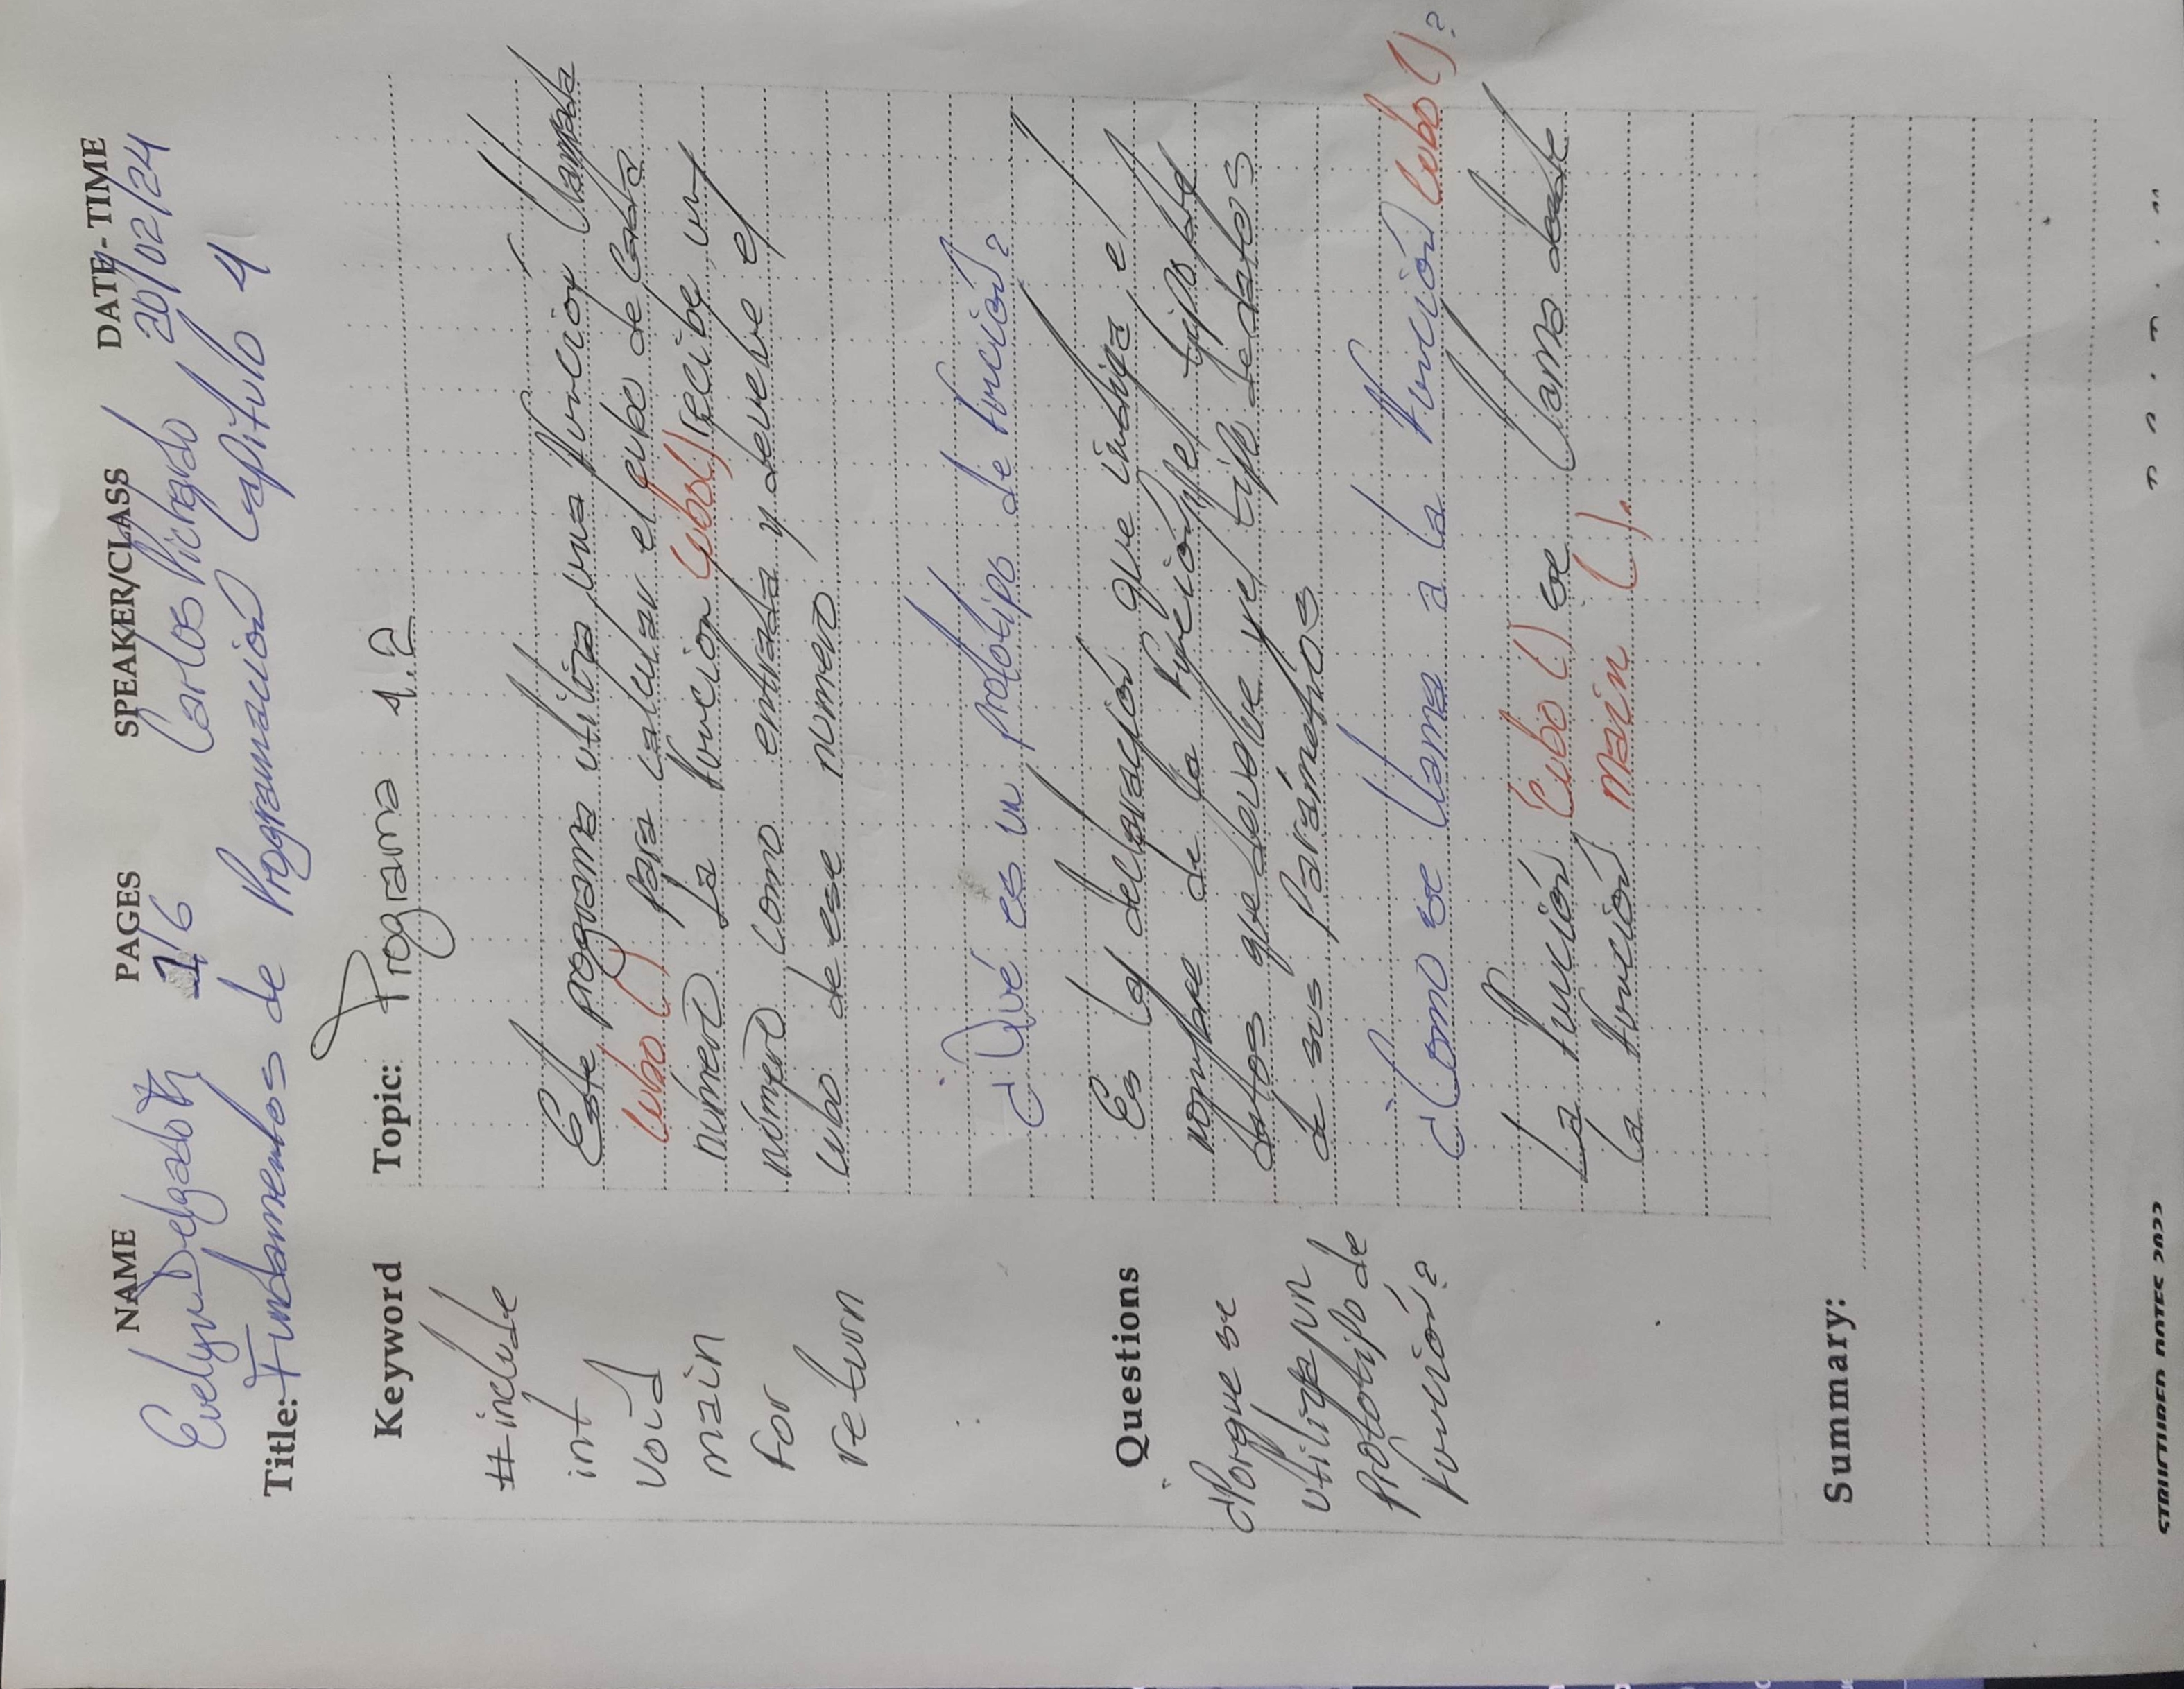 NAME PAGES SPEAKER/CLASS DATE - TIME
Evelyn Delgado 1/6 Carlos Pichardo 20/02/24
Title: Fundamentos de Programación Capitulo 4
Keyword
Topic: Programa 4.2
#include
int
void
main
for
return
Este programa utiliza una función llamada
cubo () para calcular el cubo de cada
número. La función cubo() recibe un
número como entrada y devuelve el
cubo de ese numero.
¿Qué es un prototipo de función?
Es la declaración que indica el
nombre de la función, el tipo de
datos que devuelve y el tipo de datos
de sus parámetros.
¿Como se llama a la función cubo ()?
La función cubo () se llama desde
la función main ().
Questions
¿Porque se
utiliza un
prototipo de
función?
Summary:
STRUCTURED NOTES 2022